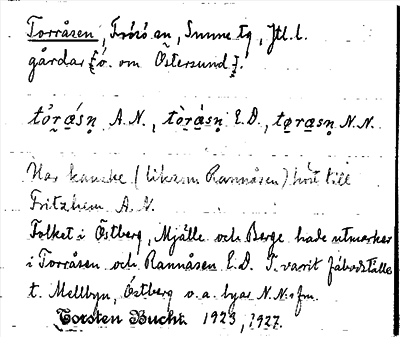 Torråsen, Frösö sn, Sunne tg, Jtl. l.
gårdar [ö. om Östersund].
tǒrǻ̱sn̥ A.N., tòrå̱̀sn̥ E.D., tǫrå̱sn̥ N.N.
Har kanske (liksom Rannåsen) hört till
Fritzhem A.N.
Folket i Östberg, Mjälle och Berge hade utmarker
i Torråsen och Rannåsen E.D. T. varit fäbodställe
t. Mellbyn, Östberg o.a. byar N.N. o fm.
Torsten Bucht. 1923, 1927.